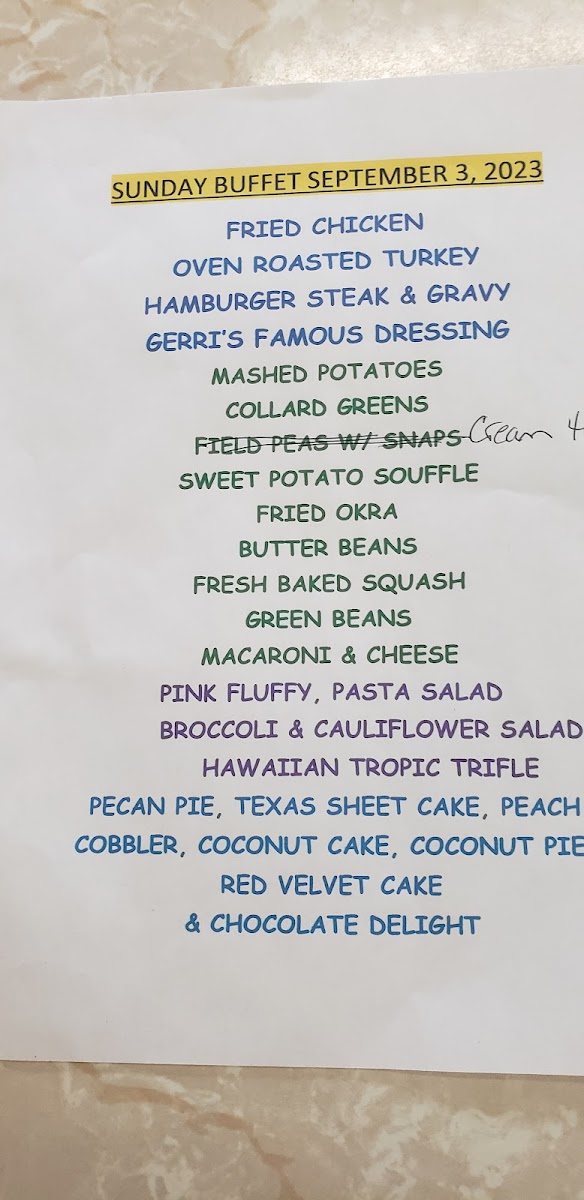 SUNDAY BUFFET SEPTEMBER 3, 2023
FRIED CHICKEN
OVEN ROASTED TURKEY
HAMBURGER STEAK & GRAVY
GERRI'S FAMOUS DRESSING
MASHED POTATOES
COLLARD GREENS
FIELD PEAS W/ SNAPS Cream
SWEET POTATO SOUFFLE
FRIED OKRA
BUTTER BEANS
FRESH BAKED SQUASH
GREEN BEANS
MACARONI & CHEESE
PINK FLUFFY, PASTA SALAD
BROCCOLI & CAULIFLOWER SALAD
HAWAIIAN TROPIC TRIFLE
PECAN PIE, TEXAS SHEET CAKE, PEACH
COBBLER, COCONUT CAKE, COCONUT PIE
RED VELVET CAKE
& CHOCOLATE DELIGHT